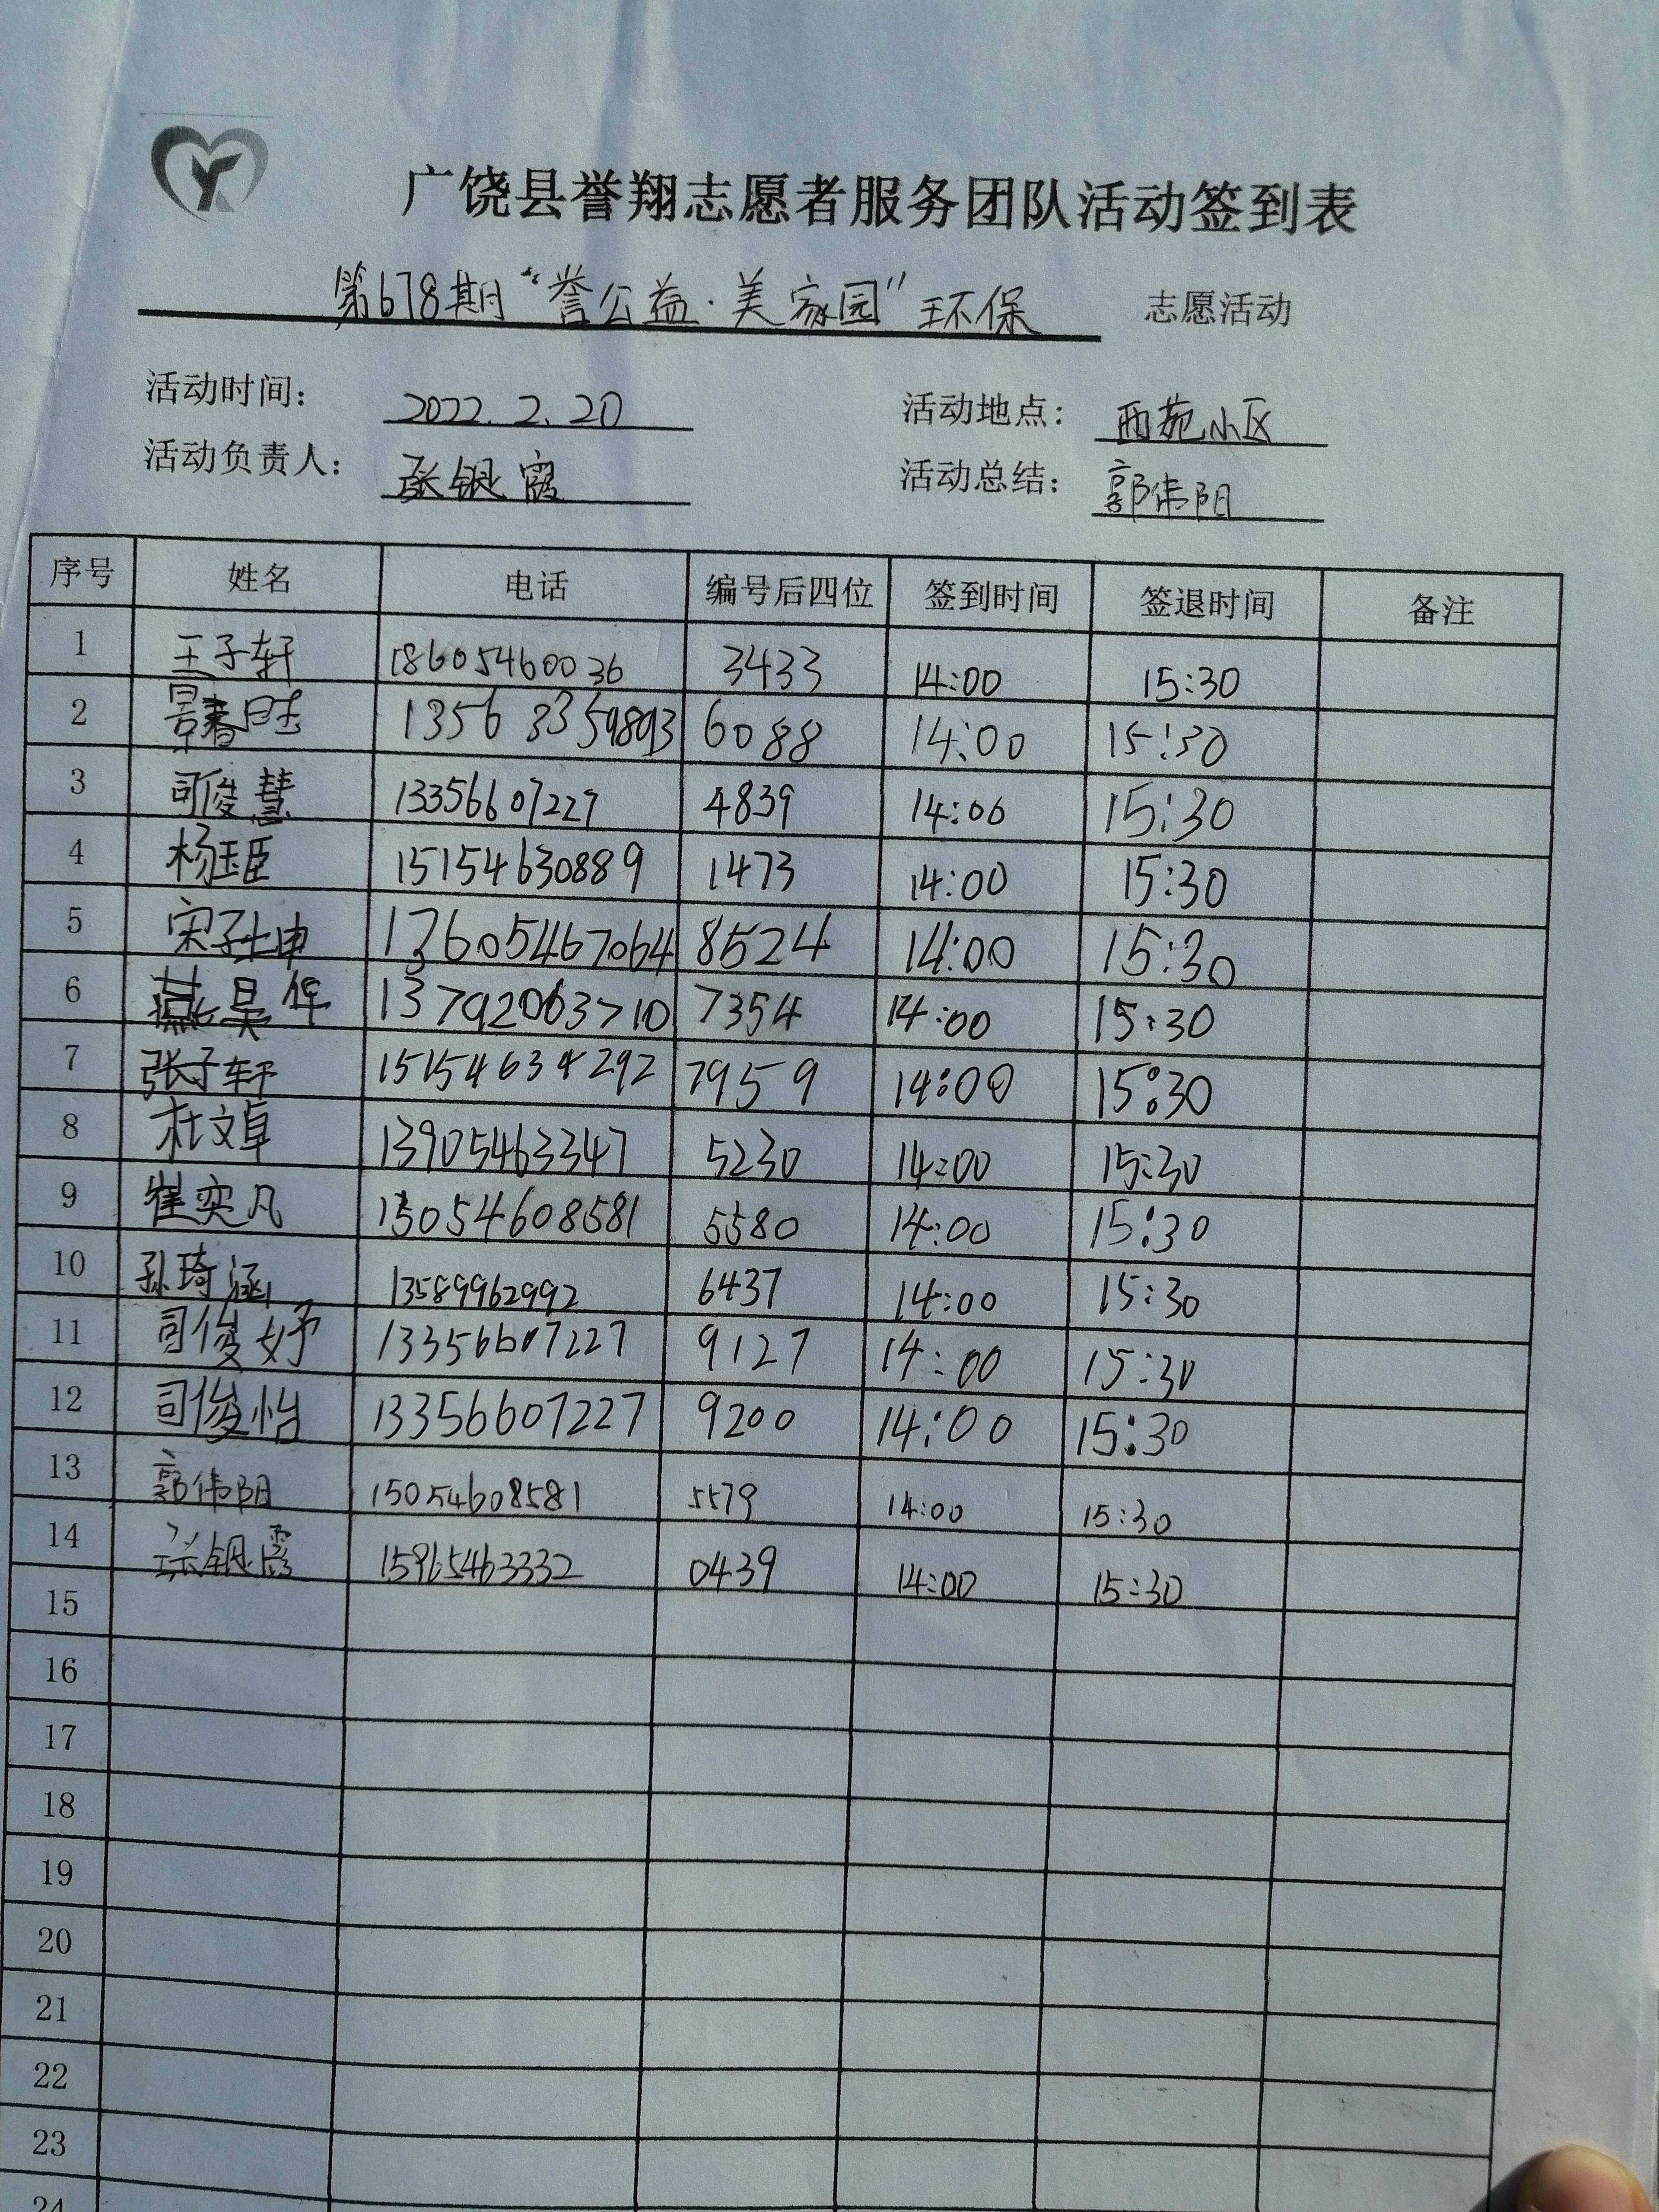 广饶县誉翔志愿者服务团队活动签到表
第678期“誉公益·美家园”环保 志愿活动
活动时间: 2022.2.20 活动地点: 西苑小区
活动负责人: 张银霞 活动总结: 郭伟阳
序号 姓名 电话 编号后四位 签到时间 签退时间 备注
1 王子轩 18605460036 3433 14:00 15:30
2 6088 14:00 15:30
3 司俊慧 13356607227 4839 14:00 15:30
4 杨珏臣 15154630889 1473 14:00 15:30
5 宋子坤 13605467064 8524 14:00 15:30
6 燕昊伴 13792063710 7354 14:00 15:30
7 张子轩 15154634292 7959 14:00 15:30
8 杜文卓 13905463347 5230 14:00 15:30
9 崔奕凡 15054608581 5580 14:00 15:30
10 孙琦涵 13589962992 6437 14:00 15:30
11 司俊妤 13356607227 9127 14:00 15:30
12 司俊怡 13356607227 9200 14:00 15:30
13 郭伟阳 15054608581 5579 14:00 15:30
14 张银霞 15965463332 0439 14:00 15:30
15
16
17
18
19
20
21
22
23
24